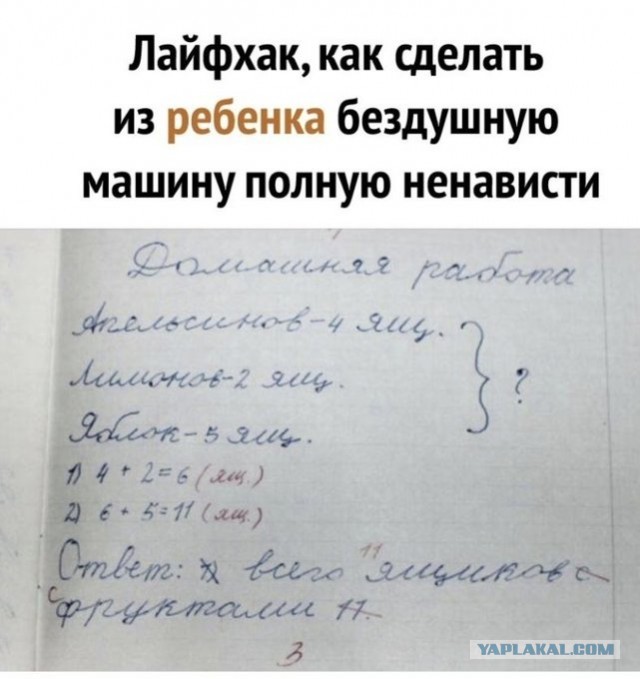 Лайфхак, как сделать
из ребенка бездушную
машину полную ненависти
Домашняя работа
Апельсинов-4 ящ.
Лимонов-2 ящ.
Яблок-5 ящ.
} ?
1) 4 + 2=6 (ящ.)
2) 6 + 5=11 (ящ.)
Ответ: всего 11 ящиков с
с фруктами 11.
3
YAPLAKAL.COM